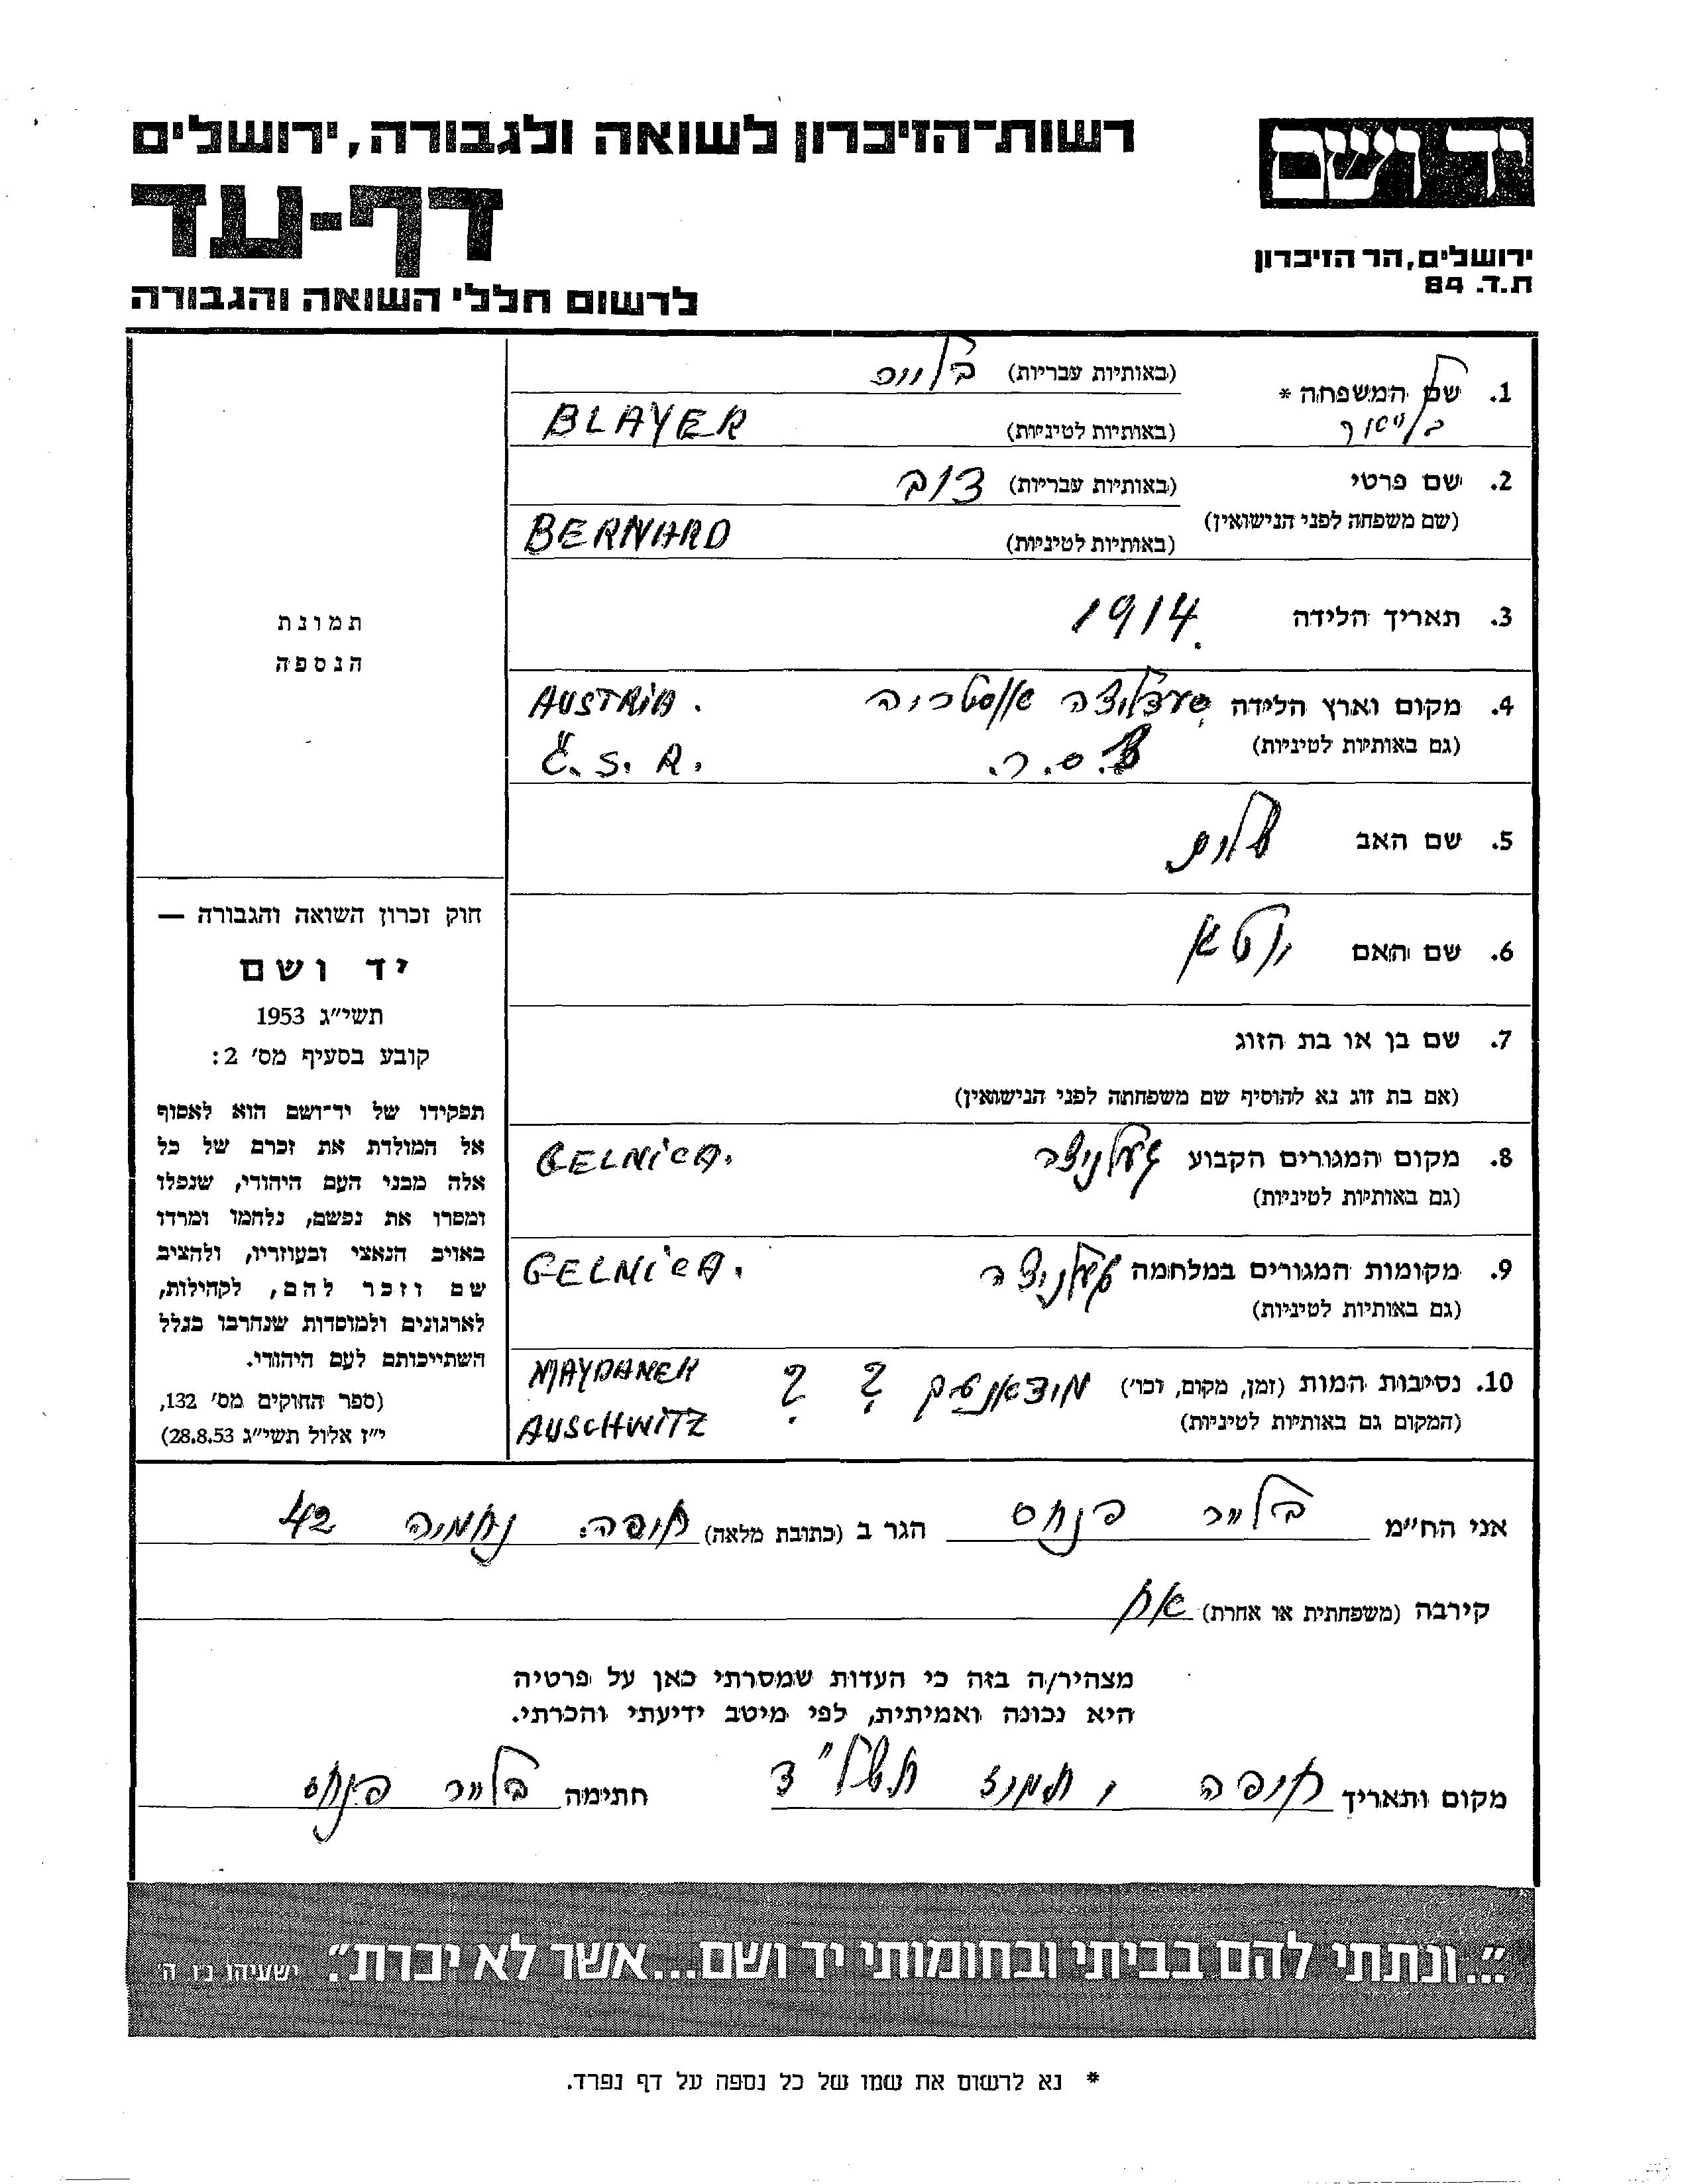 רשות־הזיכרון לשואה ולגבורה, ירושלים
יד ושם
דף-עד
ירושלים, הר הזיכרון
ת.ד. 84
לרשום חללי השואה והגבורה
1. שם המשפחה *
(באותיות עבריות) בלייר
(באותיות לטיניות) BLAYER
2. שם פרטי (באותיות עבריות) דוב
(שם משפחה לפני הנישואין)
(באותיות לטיניות) BERNARD
3. תאריך הלידה 1914
4. מקום וארץ הלידה אוסטריה AUSTRIA.
(גם באותיות לטיניות) צ.ס.ר. Č.S.R.
5. שם האב
6. שם האם יוטא
7. שם בן או בת הזוג
(אם בת זוג נא להוסיף שם משפחתה לפני הנישואין)
8. מקום המגורים הקבוע געלניצה GELNICA.
(גם באותיות לטיניות)
9. מקומות המגורים במלחמה געלניצה GELNICA.
(גם באותיות לטיניות)
10. נסיבות המות (זמן, מקום, וכו') ? ? MAYDANEK
(המקום גם באותיות לטיניות) AUSCHWITZ
תמונת
הנספה
חוק זכרון השואה והגבורה —
יד ושם
תשי״ג 1953
קובע בסעיף מס׳ 2:
תפקידו של יד־ושם הוא לאסוף
אל המולדת את זכרם של כל
אלה מבני העם היהודי, שנפלו
ומסרו את נפשם, נלחמו ומרדו
באויב הנאצי ובעוזריו, ולהציב
שם וזכר להם, לקהילות,
לארגונים ולמוסדות שנחרבו בגלל
השתייכותם לעם היהודי.
(ספר החוקים מס׳ 132,
י״ז אלול תשי״ג 28.8.53)
אני הח״מ בלייר פנחס הגר ב (כתובת מלאה) חיפה. נחמיה 42
קירבה (משפחתית או אחרת) אח
מצהיר/ה בזה כי העדות שמסרתי כאן על פרטיה
היא נכונה ואמיתית, לפי מיטב ידיעתי והכרתי.
מקום ותאריך חיפה ו תמוז תשל״ד חתימה בלייר פנחס
״...ונתתי להם בביתי ובחומותי יד ושם...אשר לא יכרת״. ישעיהו נ״ו ה׳
* נא לרשום את שמו של כל נספה על דף נפרד.